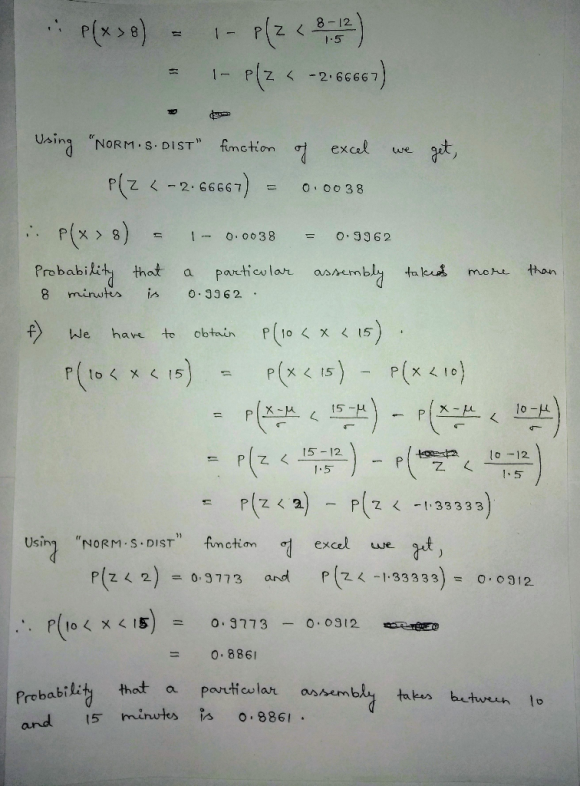 ∴ P(X > 8) = 1 - P(Z < (8-12)/1.5)
= 1 - P(Z < -2.66667)
=
Using "NORM.S.DIST" function of excel we get,
P(Z < -2.66667) = 0.0038
∴ P(X > 8) = 1 - 0.0038 = 0.9962
Probability that a particular assembly takes more than
8 minutes is 0.9962.
f) We have to obtain P(10 < X < 15).
P(10 < X < 15) = P(X < 15) - P(X < 10)
= P((X-μ)/σ < (15-μ)/σ) - P((X-μ)/σ < (10-μ)/σ)
= P(Z < (15-12)/1.5) - P(Z < (10-12)/1.5)
= P(Z < 2) - P(Z < -1.33333)
Using "NORM.S.DIST" function of excel we get,
P(Z < 2) = 0.9773 and P(Z < -1.33333) = 0.0912
∴ P(10 < X < 15) = 0.9773 - 0.0912
= 0.8861
Probability that a particular assembly takes between 10
and 15 minutes is 0.8861.